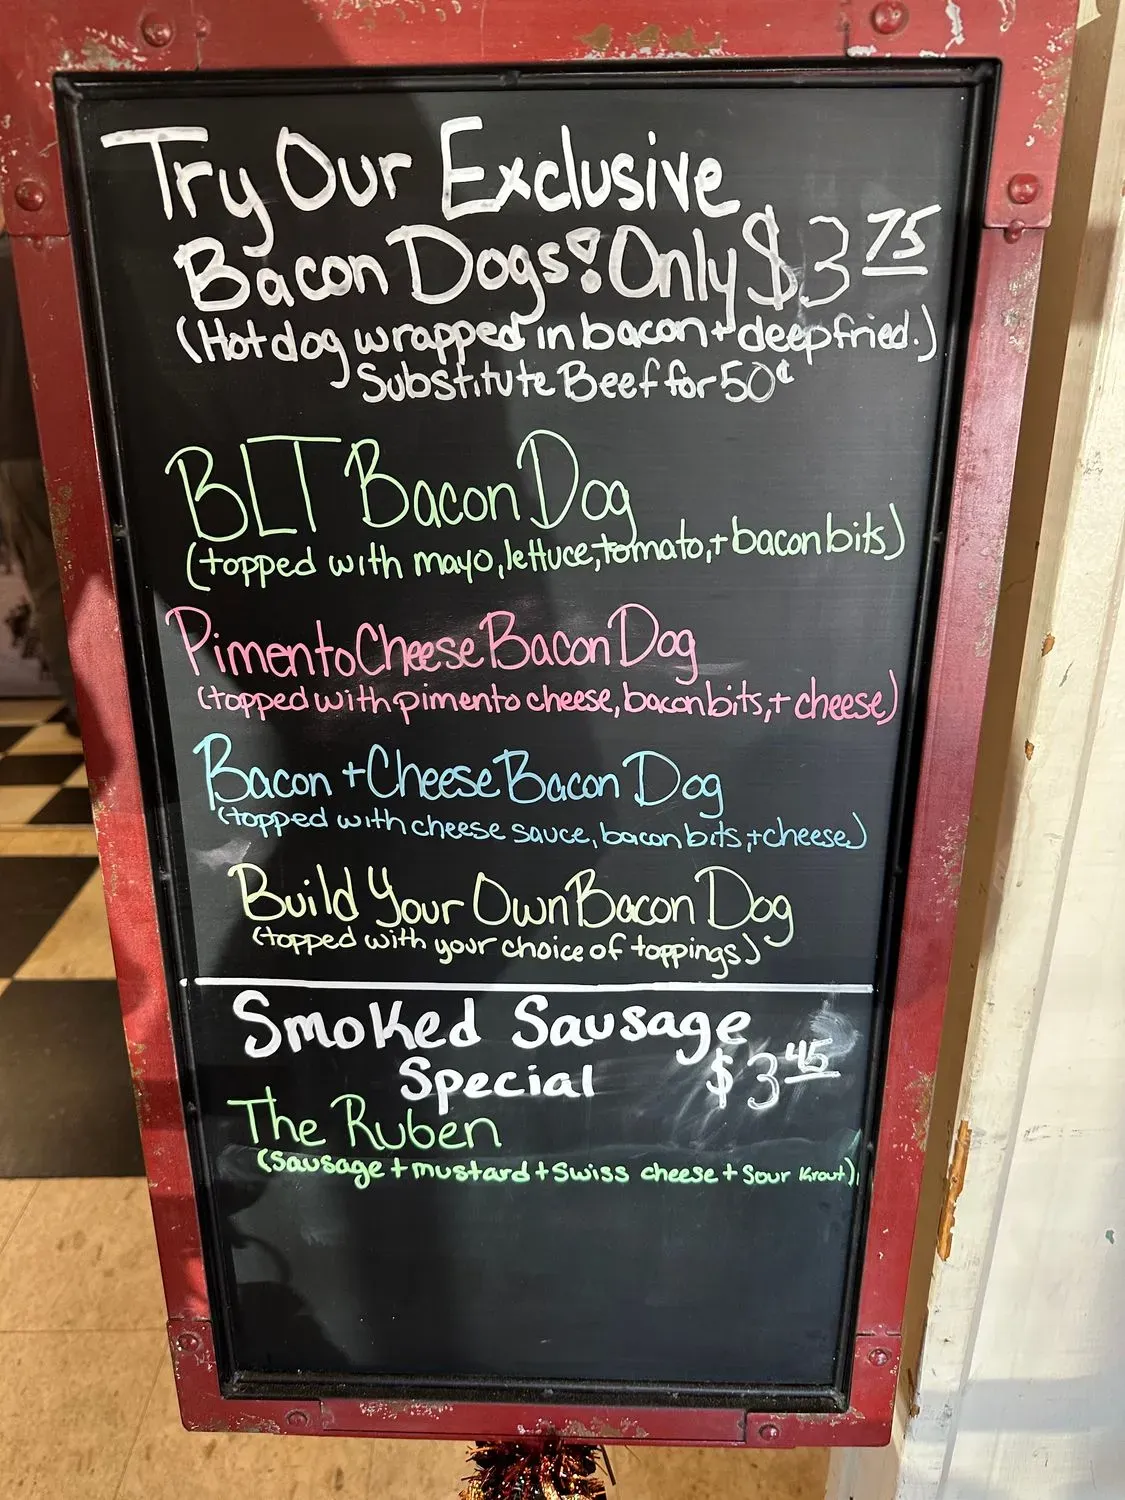 Try Our Exclusive
Bacon Dogs! Only $3 75
(Hot dog wrapped in bacon + deep fried.)
Substitute Beef for 50¢
BLT Bacon Dog
(topped with mayo, lettuce, tomato, + bacon bits)
Pimento Cheese Bacon Dog
(topped with pimento cheese, bacon bits, + cheese)
Bacon + Cheese Bacon Dog
(topped with cheese sauce, bacon bits, + cheese)
Build Your Own Bacon Dog
(topped with your choice of toppings)
Smoked Sausage
Special $3 45
The Ruben
(Sausage + mustard + Swiss cheese + Sour Krout)